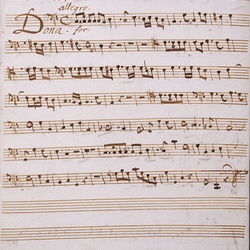 allegro.
Dona. for.